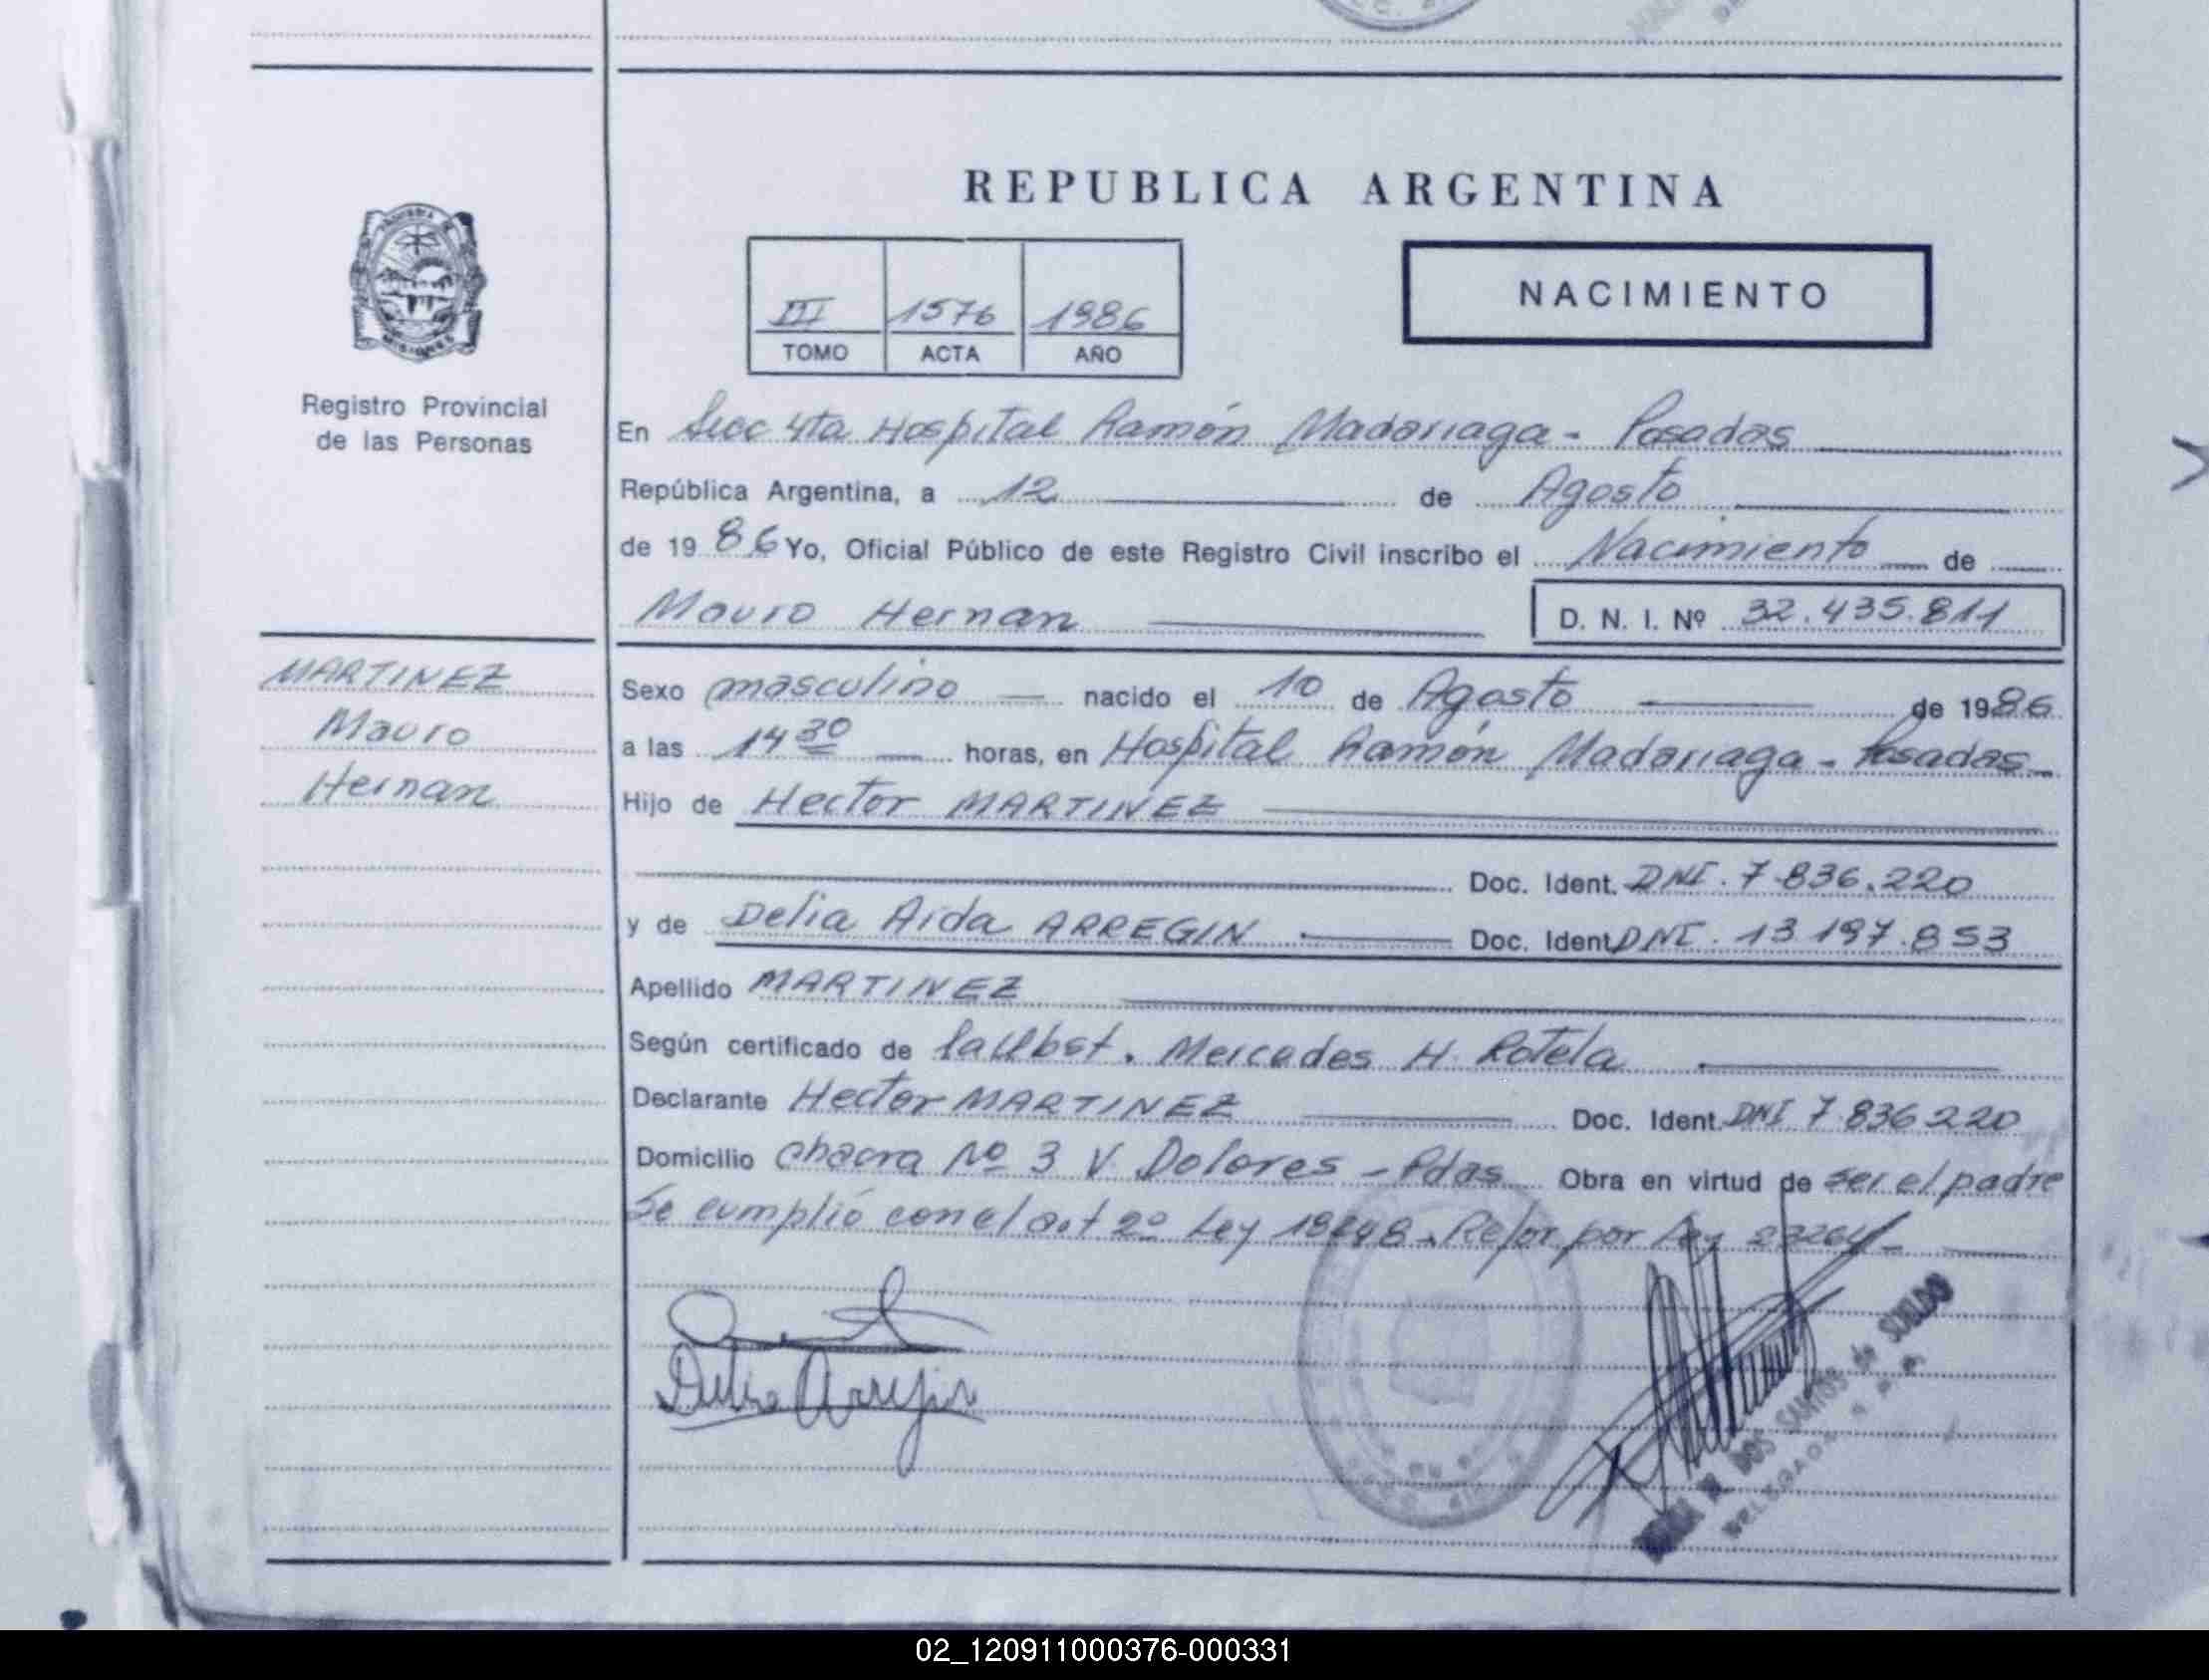 REPUBLICA ARGENTINA
III 1576 1986
TOMO ACTA AÑO
NACIMIENTO
Registro Provincial
de las Personas
En Secc 4ta Hospital Ramón Madariaga - Posadas
República Argentina, a 12 de Agosto
de 1986 Yo, Oficial Público de este Registro Civil inscribo el Nacimiento de
Mauro Hernan D. N. I. Nº 32.435.811
MARTINEZ
Mauro
Hernan
Sexo masculino nacido el 10 de Agosto de 1986
a las 14 30 horas, en Hospital Ramón Madariaga - Posadas
Hijo de Hector MARTINEZ
Doc. Ident. DNI. 7 836.220
y de Delia Aida ARREGIN Doc. Ident. DNI. 13 197.853
Apellido MARTINEZ
Según certificado de Mercedes H. Rotela
Declarante Hector MARTINEZ Doc. Ident. DNI 7 836 220
Domicilio Chacra Nº 3 V. Dolores - Pdas Obra en virtud de ser el padre
Se cumplió con el art 2º Ley 18248. Refor por Ley 23264
Delia Arregin
DOS SANTOS de SUELDO
DELEGADA
02_120911000376-000331